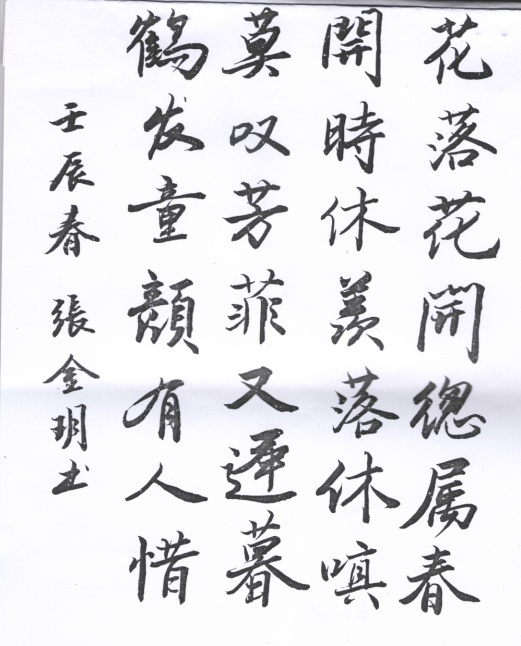 花落花開總属春
開時休羨落休嗔
莫叹芳菲又遲暮
鶴发童顏有人惜
壬辰春 張金玥书